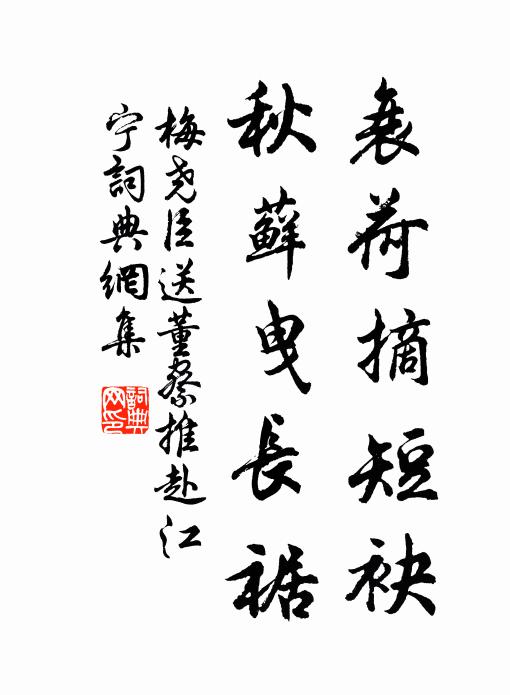 衰荷摘短袂
秋蘚曳長裾
梅尧臣送董察推赴江
宁詞典網集
詞典网印